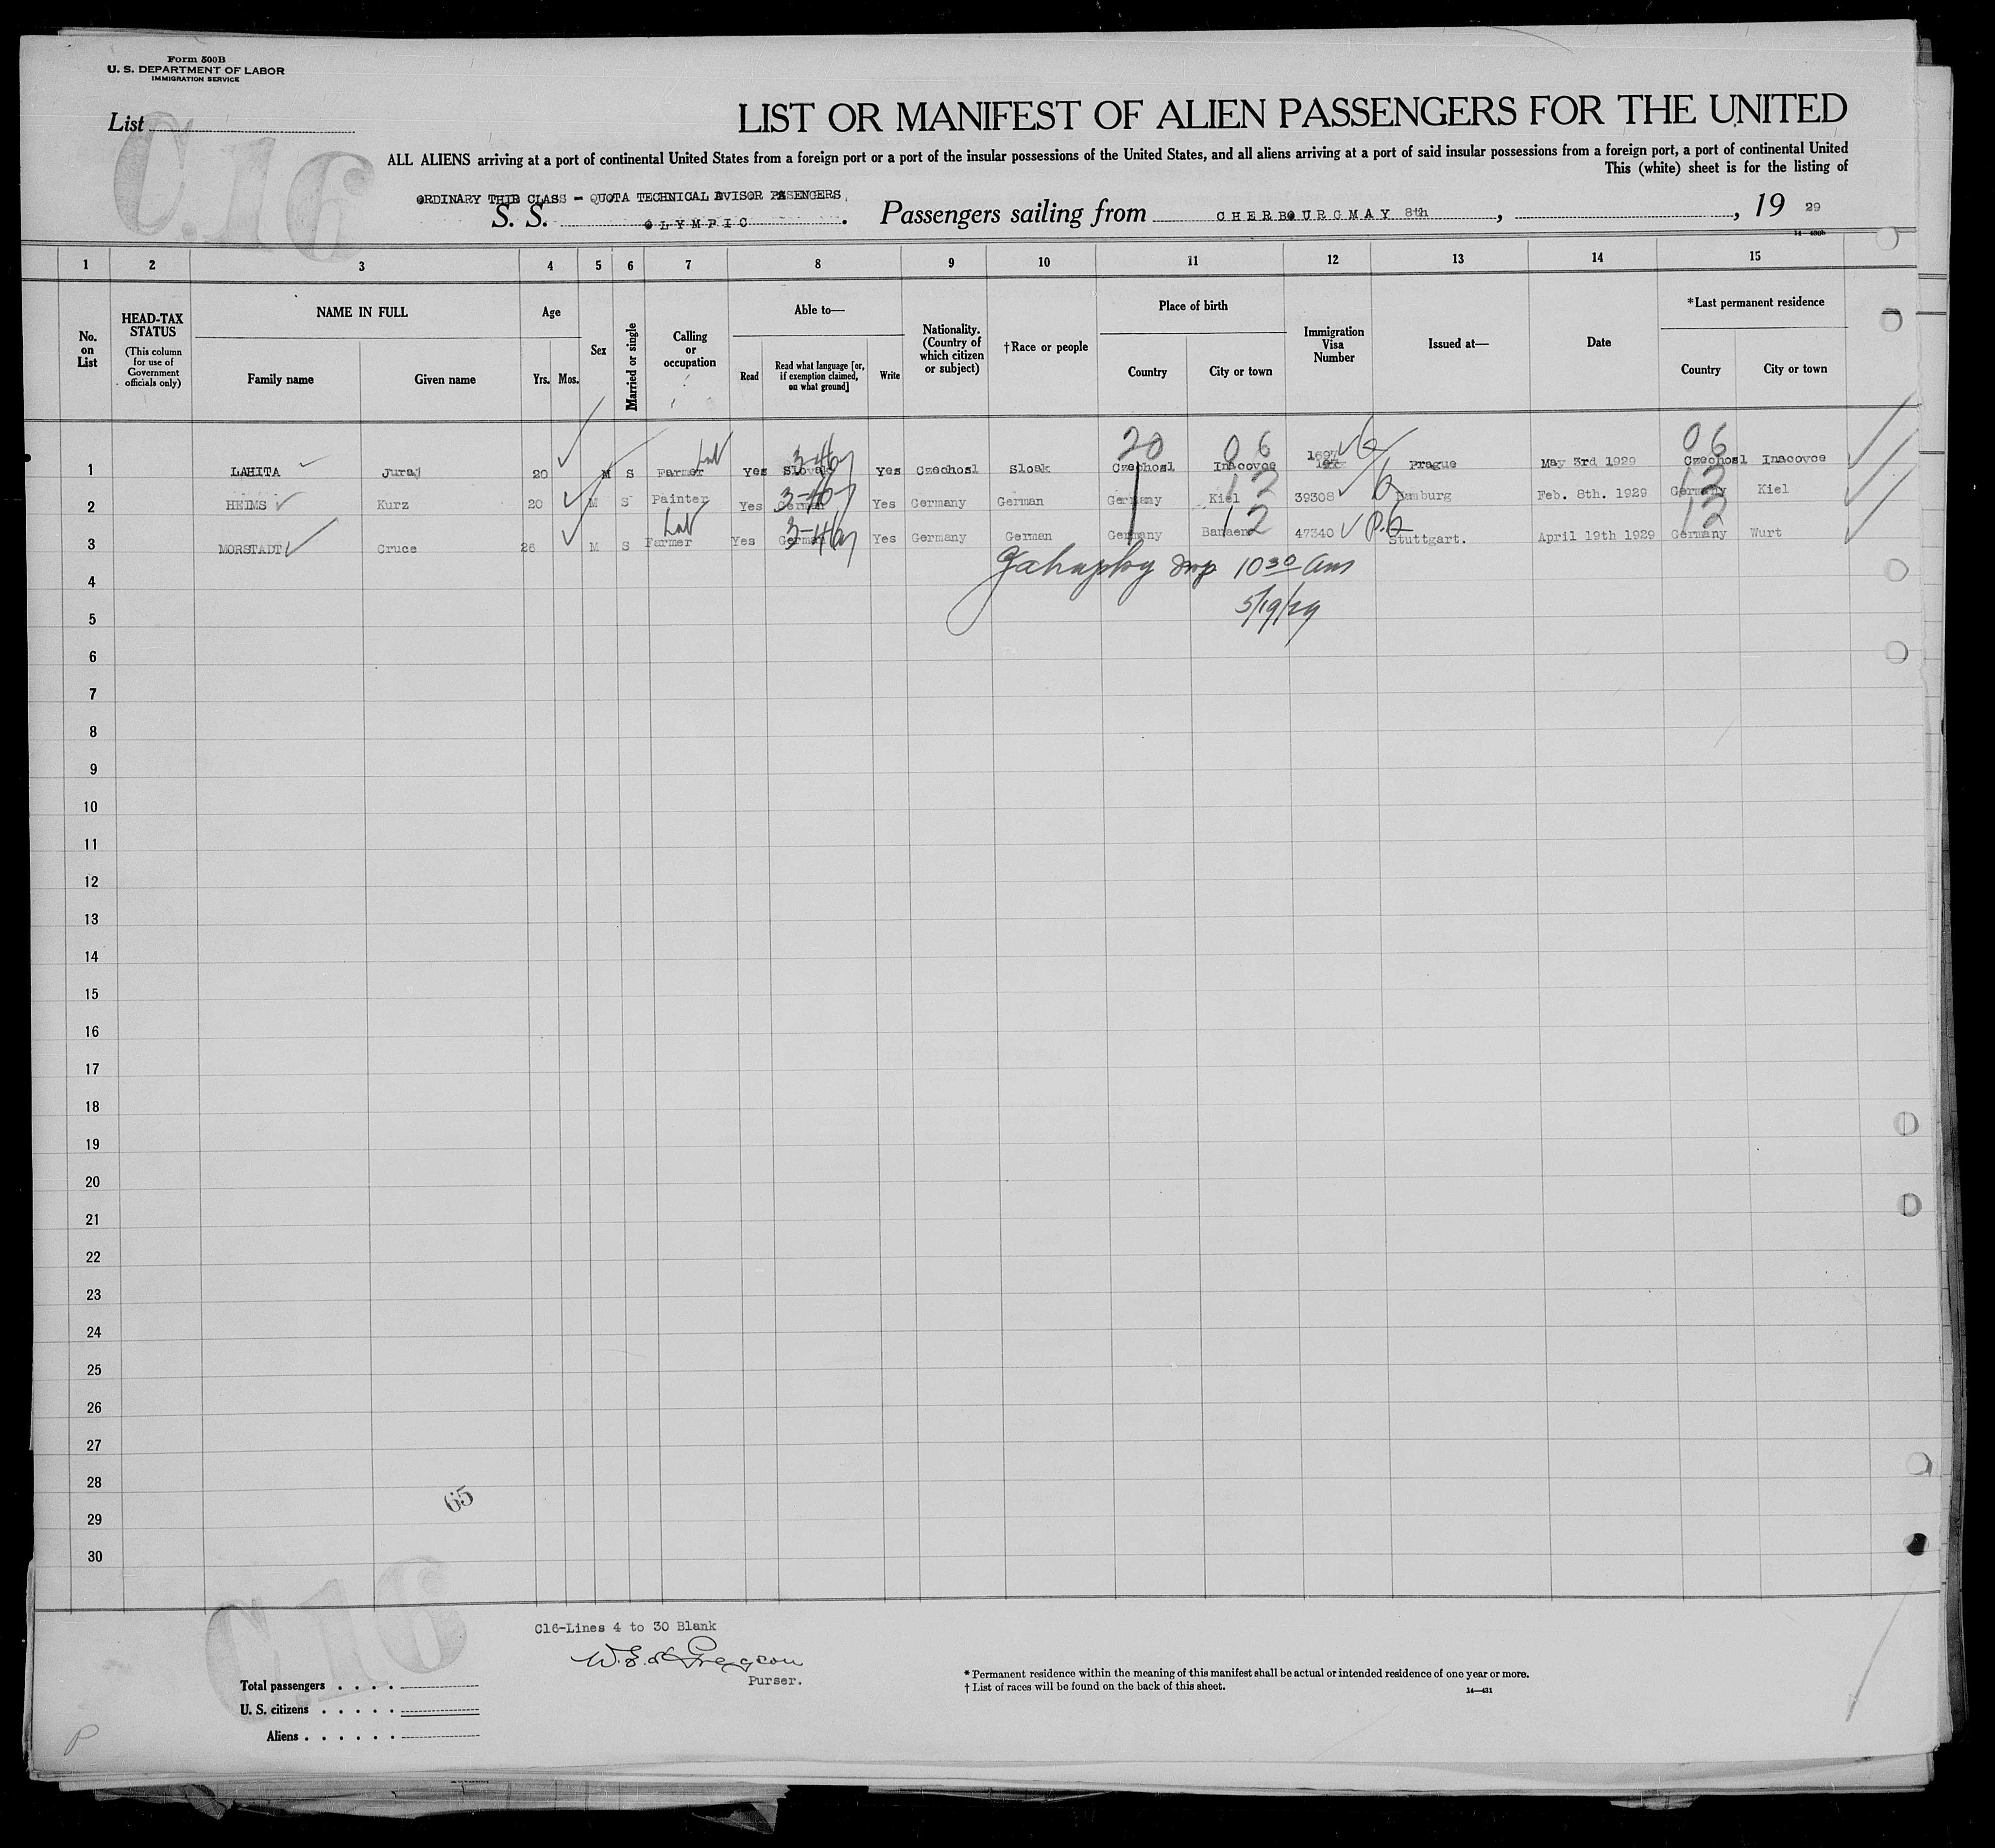 Form 500B
U. S. DEPARTMENT OF LABOR
IMMIGRATION SERVICE
List
C.16
LIST OR MANIFEST OF ALIEN PASSENGERS FOR THE UNITED
ALL ALIENS arriving at a port of continental United States from a foreign port or a port of the insular possessions of the United States, and all aliens arriving at a port of said insular possessions from a foreign port, a port of continental United
This (white) sheet is for the listing of
ORDINARY THIR CLASS - QUOTA TECHNICAL DVISOR PASENGERS
S. S. OLYMPIC. Passengers sailing from CHERBOURG MAY 8th, , 19 29
1 2 3 4 5 6 7 8 9 10 11 12 13 14 15
No. on List
HEAD-TAX STATUS (This column for use of Government officials only)
NAME IN FULL
Family name Given name
Age
Yrs. Mos.
Sex
Married or single
Calling or occupation
Able to—
Read Read what language [or, if exemption claimed, on what ground] Write
Nationality. (Country of which citizen or subject)
†Race or people
Place of birth
Country City or town
Immigration Visa Number
Issued at—
Date
*Last permanent residence
Country City or town
20 06 06
1 LAHITA Juraj 20 M S Farmer Yes Slovak Yes Czechosl Sloak Czechosl Inacovce 1697 Prague May 3rd 1929 Czechosl Inacovce
12 12
2 HEIMS Kurz 20 M S Painter Yes German Yes Germany German Germany Kiel 39308 Hamburg Feb. 8th. 1929 Germany Kiel
12 12
3 MORSTADT Cruce 26 M S Farmer Yes German Yes Germany German Germany 47340 Stuttgart. April 19th 1929 Germany Wurt
4 10 30 am
5 5/19/29
6
7
8
9
10
11
12
13
14
15
16
17
18
19
20
21
22
23
24
25
26
27
28
65
29
30
C.16
C16-Lines 4 to 30 Blank
Purser.
Total passengers . . . .
U. S. citizens . . . . .
Aliens . . . . . .
* Permanent residence within the meaning of this manifest shall be actual or intended residence of one year or more.
† List of races will be found on the back of this sheet.
14—431
P